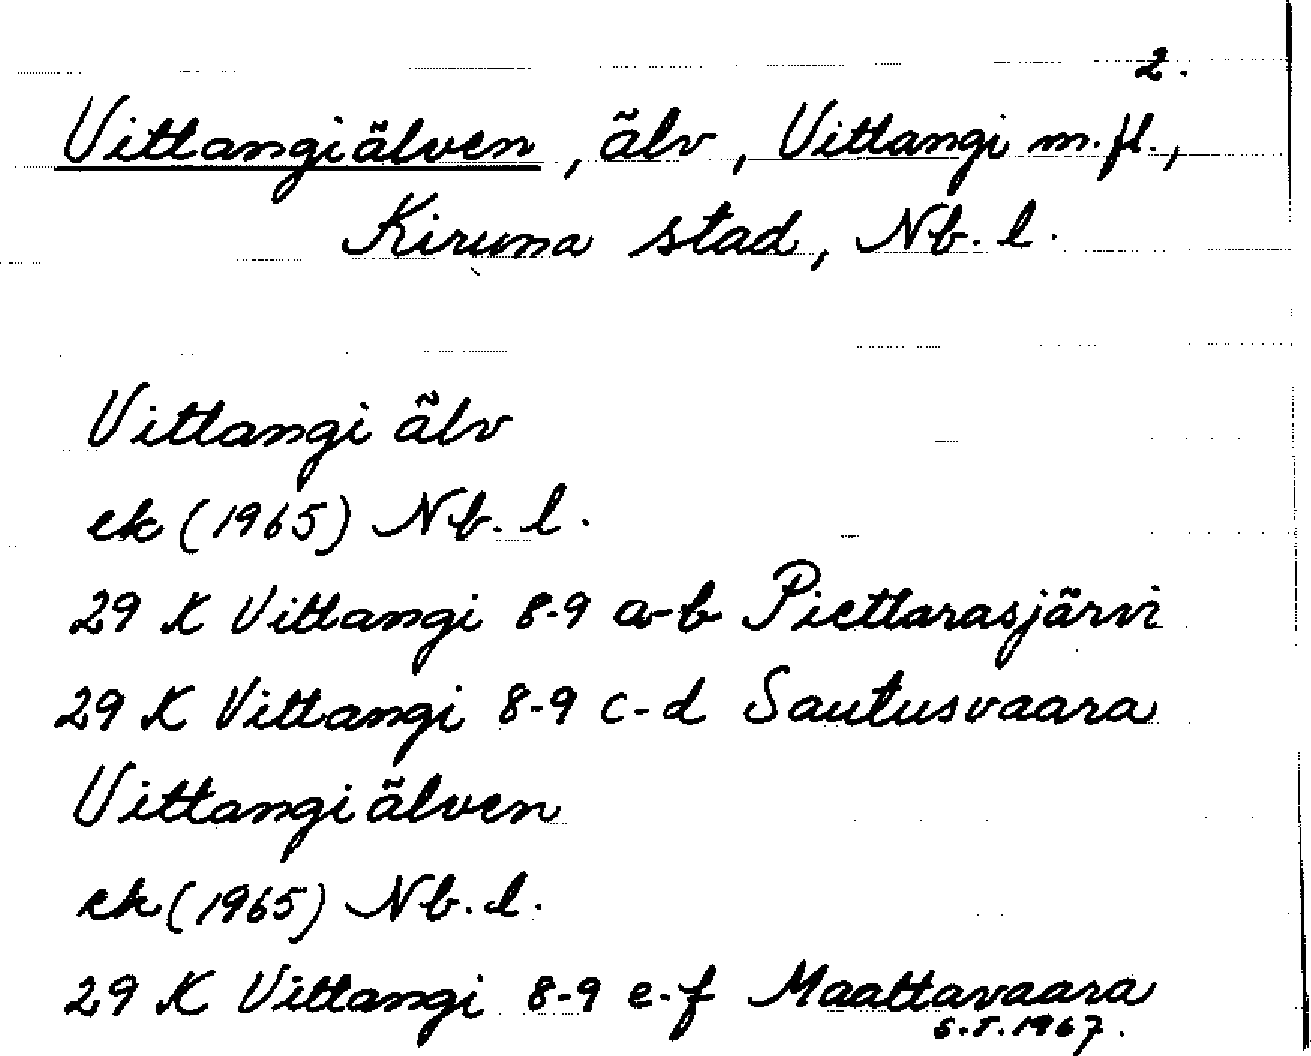 2.
Vittangiälven, älv, Vittangi m.fl.,
Kiruna stad, Nb. l.
Vittangi älv
ek (1965) Nb. l.
29 K Vittangi 8-9 a-b Piettarasjärvi
29 K Vittangi 8-9 c-d Sautusvaara
Vittangiälven
ek (1965) Nb. l.
29 K Vittangi 8-9 e-f Maattavaara
S.T. 1967.